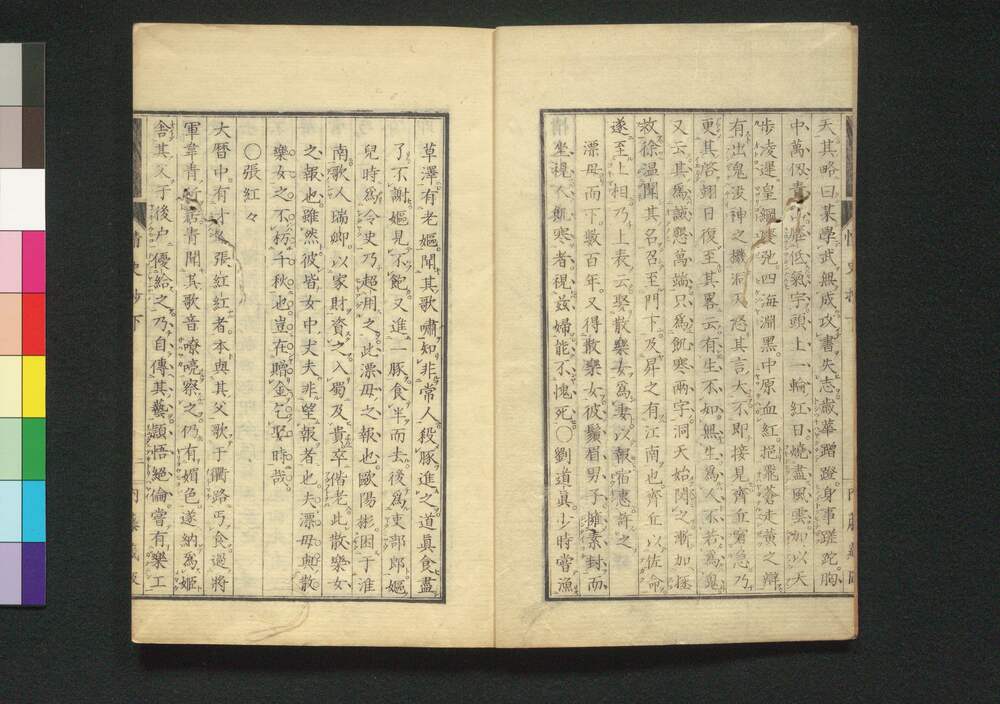 天其略曰某學武無成攻書失志歲華蹭蹬身事蹉跎胸
中萬仭青山壓低氣宇頭上一輪紅日燒盡風雲加以天
步凌遲皇綱廢弛四海淵黑中原血紅挹飛蒼走黃之辯
有出鬼沒神之機洞天怒其言大不即接見齊丘窘急乃
更其啓翊日復至其畧云有生不如無生爲人不若爲鬼
又云其爲誠懇萬端只爲飢寒兩字洞天始閔之漸加拯
救徐溫聞其名召至門下及昇之有江南也齊丘以佐命
遂至上相乃上表云娶散樂女爲妻以報宿惠許之
漂母而下數百年又得散樂女彼鬚眉男子擁素封而
坐視人飢寒者視兹婦能不愧死〇劉道眞少時嘗漁
草澤有老嫗聞其歌嘯知非常人殺豚進之道眞食盡
了不謝嫗見不飽又進一豚食半而去後爲吏部郎嫗
兒時爲令史乃超用之此漂母之報也歐陽彬困于淮
南歌人瑞卿以家財資之入蜀及貴卒偕老此散樂女
之報也雖然彼皆女中丈夫非望報者也夫漂母與散
樂女之不朽千秋也豈在贈金已娶時哉
〇張紅々
大曆中有才人張紅紅者本與其父歌于衢路丐食過將
軍韋青所居青聞其歌音嘹喨察之仍有媚色遂納爲姬
舍其父于後户優給之乃自傳其藝頴悟絕倫嘗有樂工